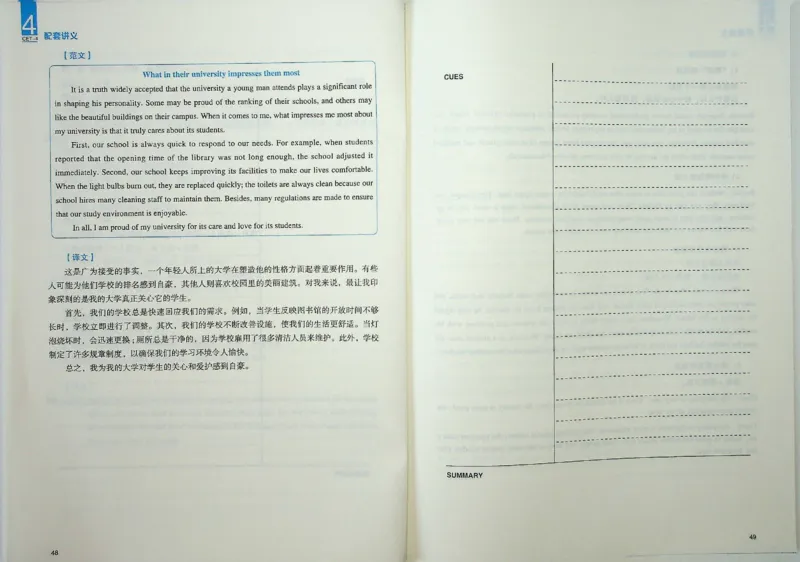 4
CET-4
配套讲义
【范文】
What in their university impresses them most
It is a truth widely accepted that the university a young man attends plays a significant role
in shaping his personality. Some may be proud of the ranking of their schools, and others may
like the beautiful buildings on their campus. When it comes to me, what impresses me most about
my university is that it truly cares about its students.
First, our school is always quick to respond to our needs. For example, when students
reported that the opening time of the library was not long enough, the school adjusted it
immediately. Second, our school keeps improving its facilities to make our lives comfortable.
When the light bulbs burn out, they are replaced quickly; the toilets are always clean because our
school hires many cleaning staff to maintain them. Besides, many regulations are made to ensure
that our study environment is enjoyable.
In all, I am proud of my university for its care and love for its students.
【译文】
这是广为接受的事实，一个年轻人所上的大学在塑造他的性格方面起着重要作用。有些
人可能为他们学校的排名感到自豪，其他人则喜欢校园里的美丽建筑，对我来说，最让我印
象深刻的是我的大学真正关心它的学生。
首先，我们的学校总是快速回应我们的需求。例如，当学生反映图书馆的开放时间不够
长时，学校立即进行了调整。其次，我们的学校不断改善设施，使我们的生活更舒适。当灯
泡烧坏时，会迅速更换；厕所总是干净的，因为学校雇用了很多清洁人员来维护。此外，学校
制定了许多规章制度，以确保我们的学习环境令人愉快。
总之，我为我的大学对学生的关心和爱护感到自豪。
48
CUES
SUMMARY
49